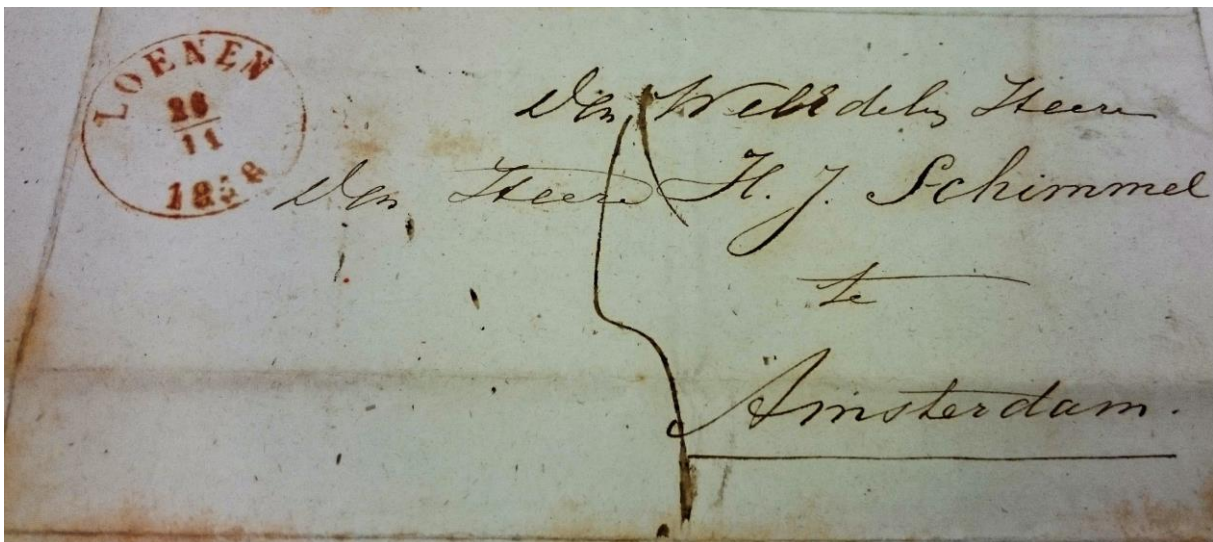 LOENEN
26
11
1858
Den WelEdelen Heere
Den Heere H. J. Schimmel
te
Amsterdam.